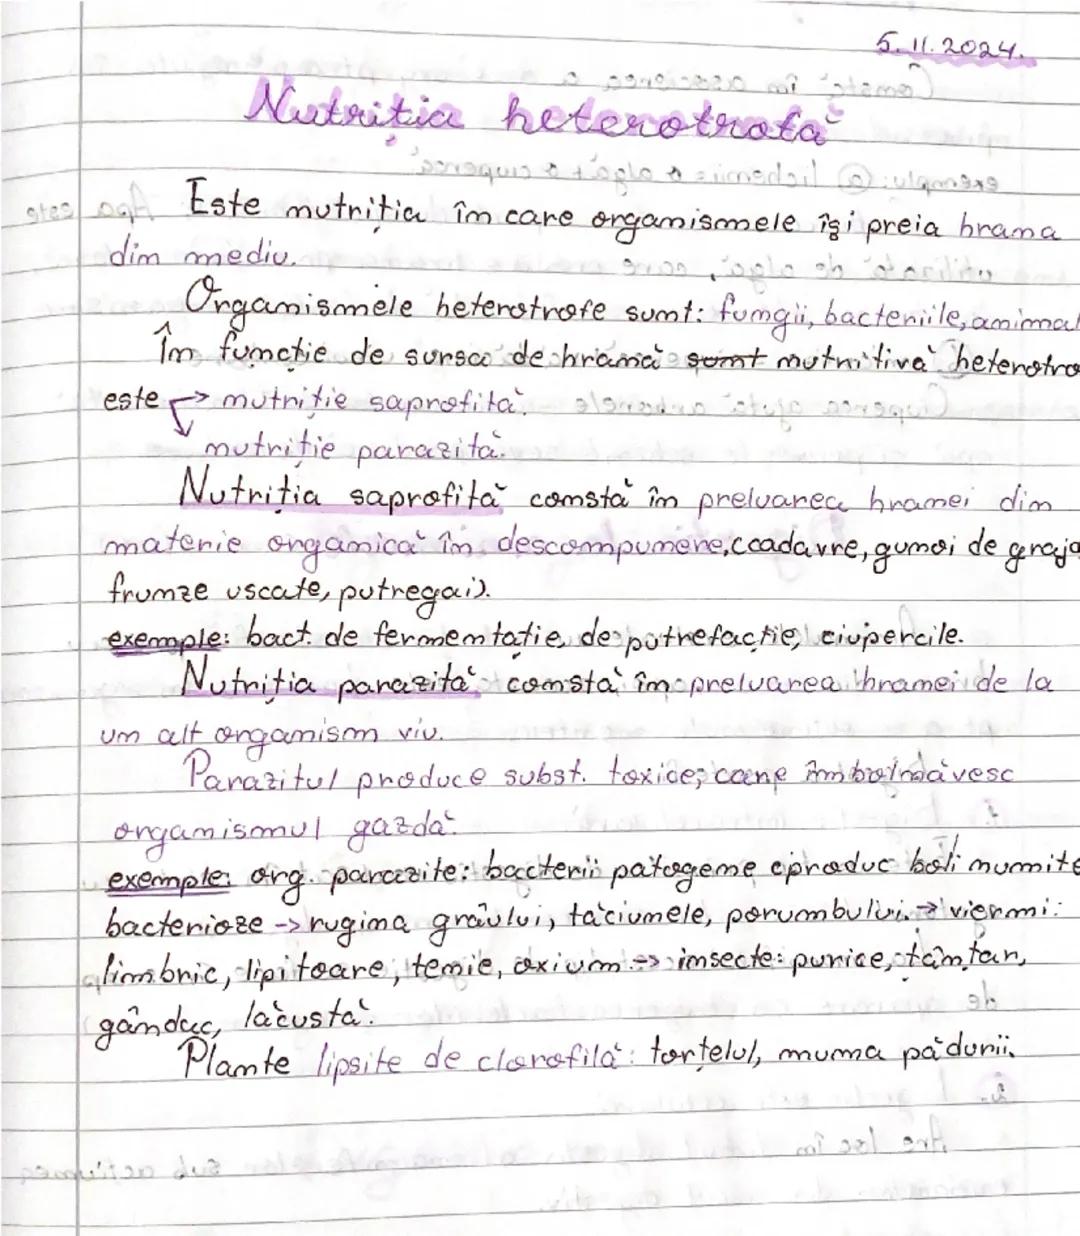 5. 11. 2024.
Nutriția heterotrofă
Este nutriția în care organismele își preia hrana
din mediu.
Organismele heterotrofe sunt: fungii, bacteriile, animal
În funcție de sursa de hrană sunt nutritivă heterotro
este → nutriție saprofită.
nutriție parazită.
Nutriția saprofită constă în preluarea hranei din
materie organică în descompunere, (cadavre, gunoi de graja
frunze uscate, putregai).
exemple: bact. de fermentație, de putrefacție, ciupercile.
Nutriția parazită constă în preluarea hranei de la
un alt organism viu.
Parazitul produce subst. toxice, care îmbolnăvesc
organismul gazdă.
exemple: org. parazite: bacterii patogene (produc boli numite
bacterioze → rugina grâului, tăciunele, porumbului. → viermi:
limbric, lipitoare, tenie, oxium → insecte: purice, țânțar,
gândac, lăcustă.
Plante lipsite de clorofilă: torțelul, muma pădurii.